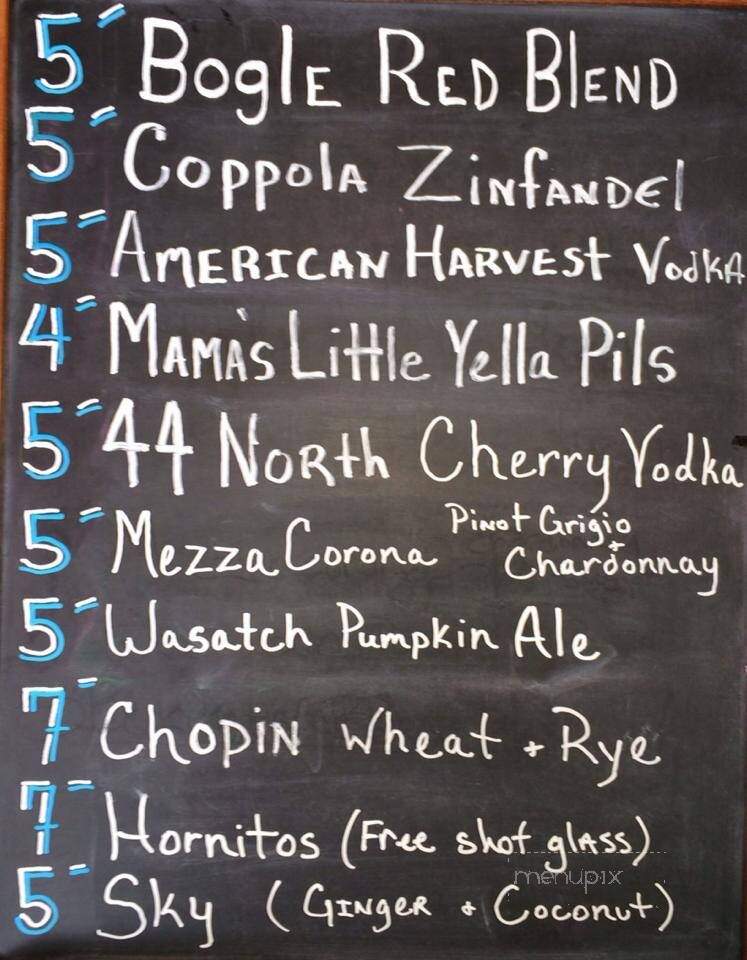 5= Bogle Red Blend
5= Coppola Zinfandel
5= American Harvest Vodka
4= Mama's Little Yella Pils
5= 44 North Cherry Vodka
5= Mezza Corona Pinot Grigio + Chardonnay
5= Wasatch Pumpkin Ale
7= Chopin Wheat + Rye
7= Hornitos (Free shot glass)
menupix
5= Sky (Ginger + Coconut)